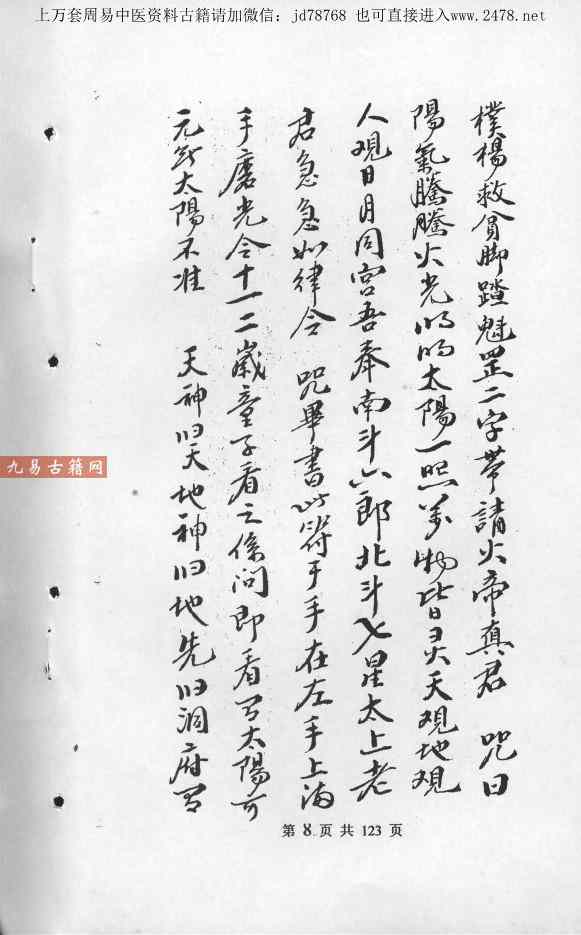 上万套周易中医资料古籍请加微信：jd78768 也可直接进入www.2478.net
樸楊救貧脚踏魁罡二字帶請火帝真君 咒曰
陽氣騰騰火光明明太陽一照萬物皆灵天观地观
人观日月同宫吾奉南斗六郎北斗七星太上老
君急急如律令 咒畢書此符于手在左手上海
手磨光令十一二歲童子看之係问即看有太陽可
元無太陽不准 天神归天地神归地先归洞府有
九易古籍网
第 8 页 共 123 页